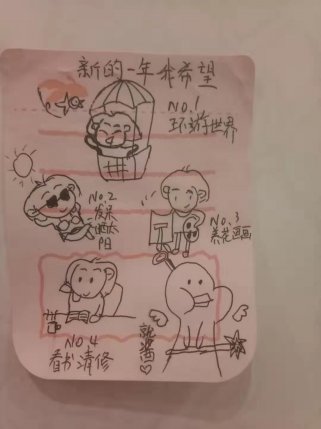 新的一年我希望
NO.1
环游世界
NO.2
发呆
晒太
阳
NO.3
养花画画
NO.4
看书清修
就酱